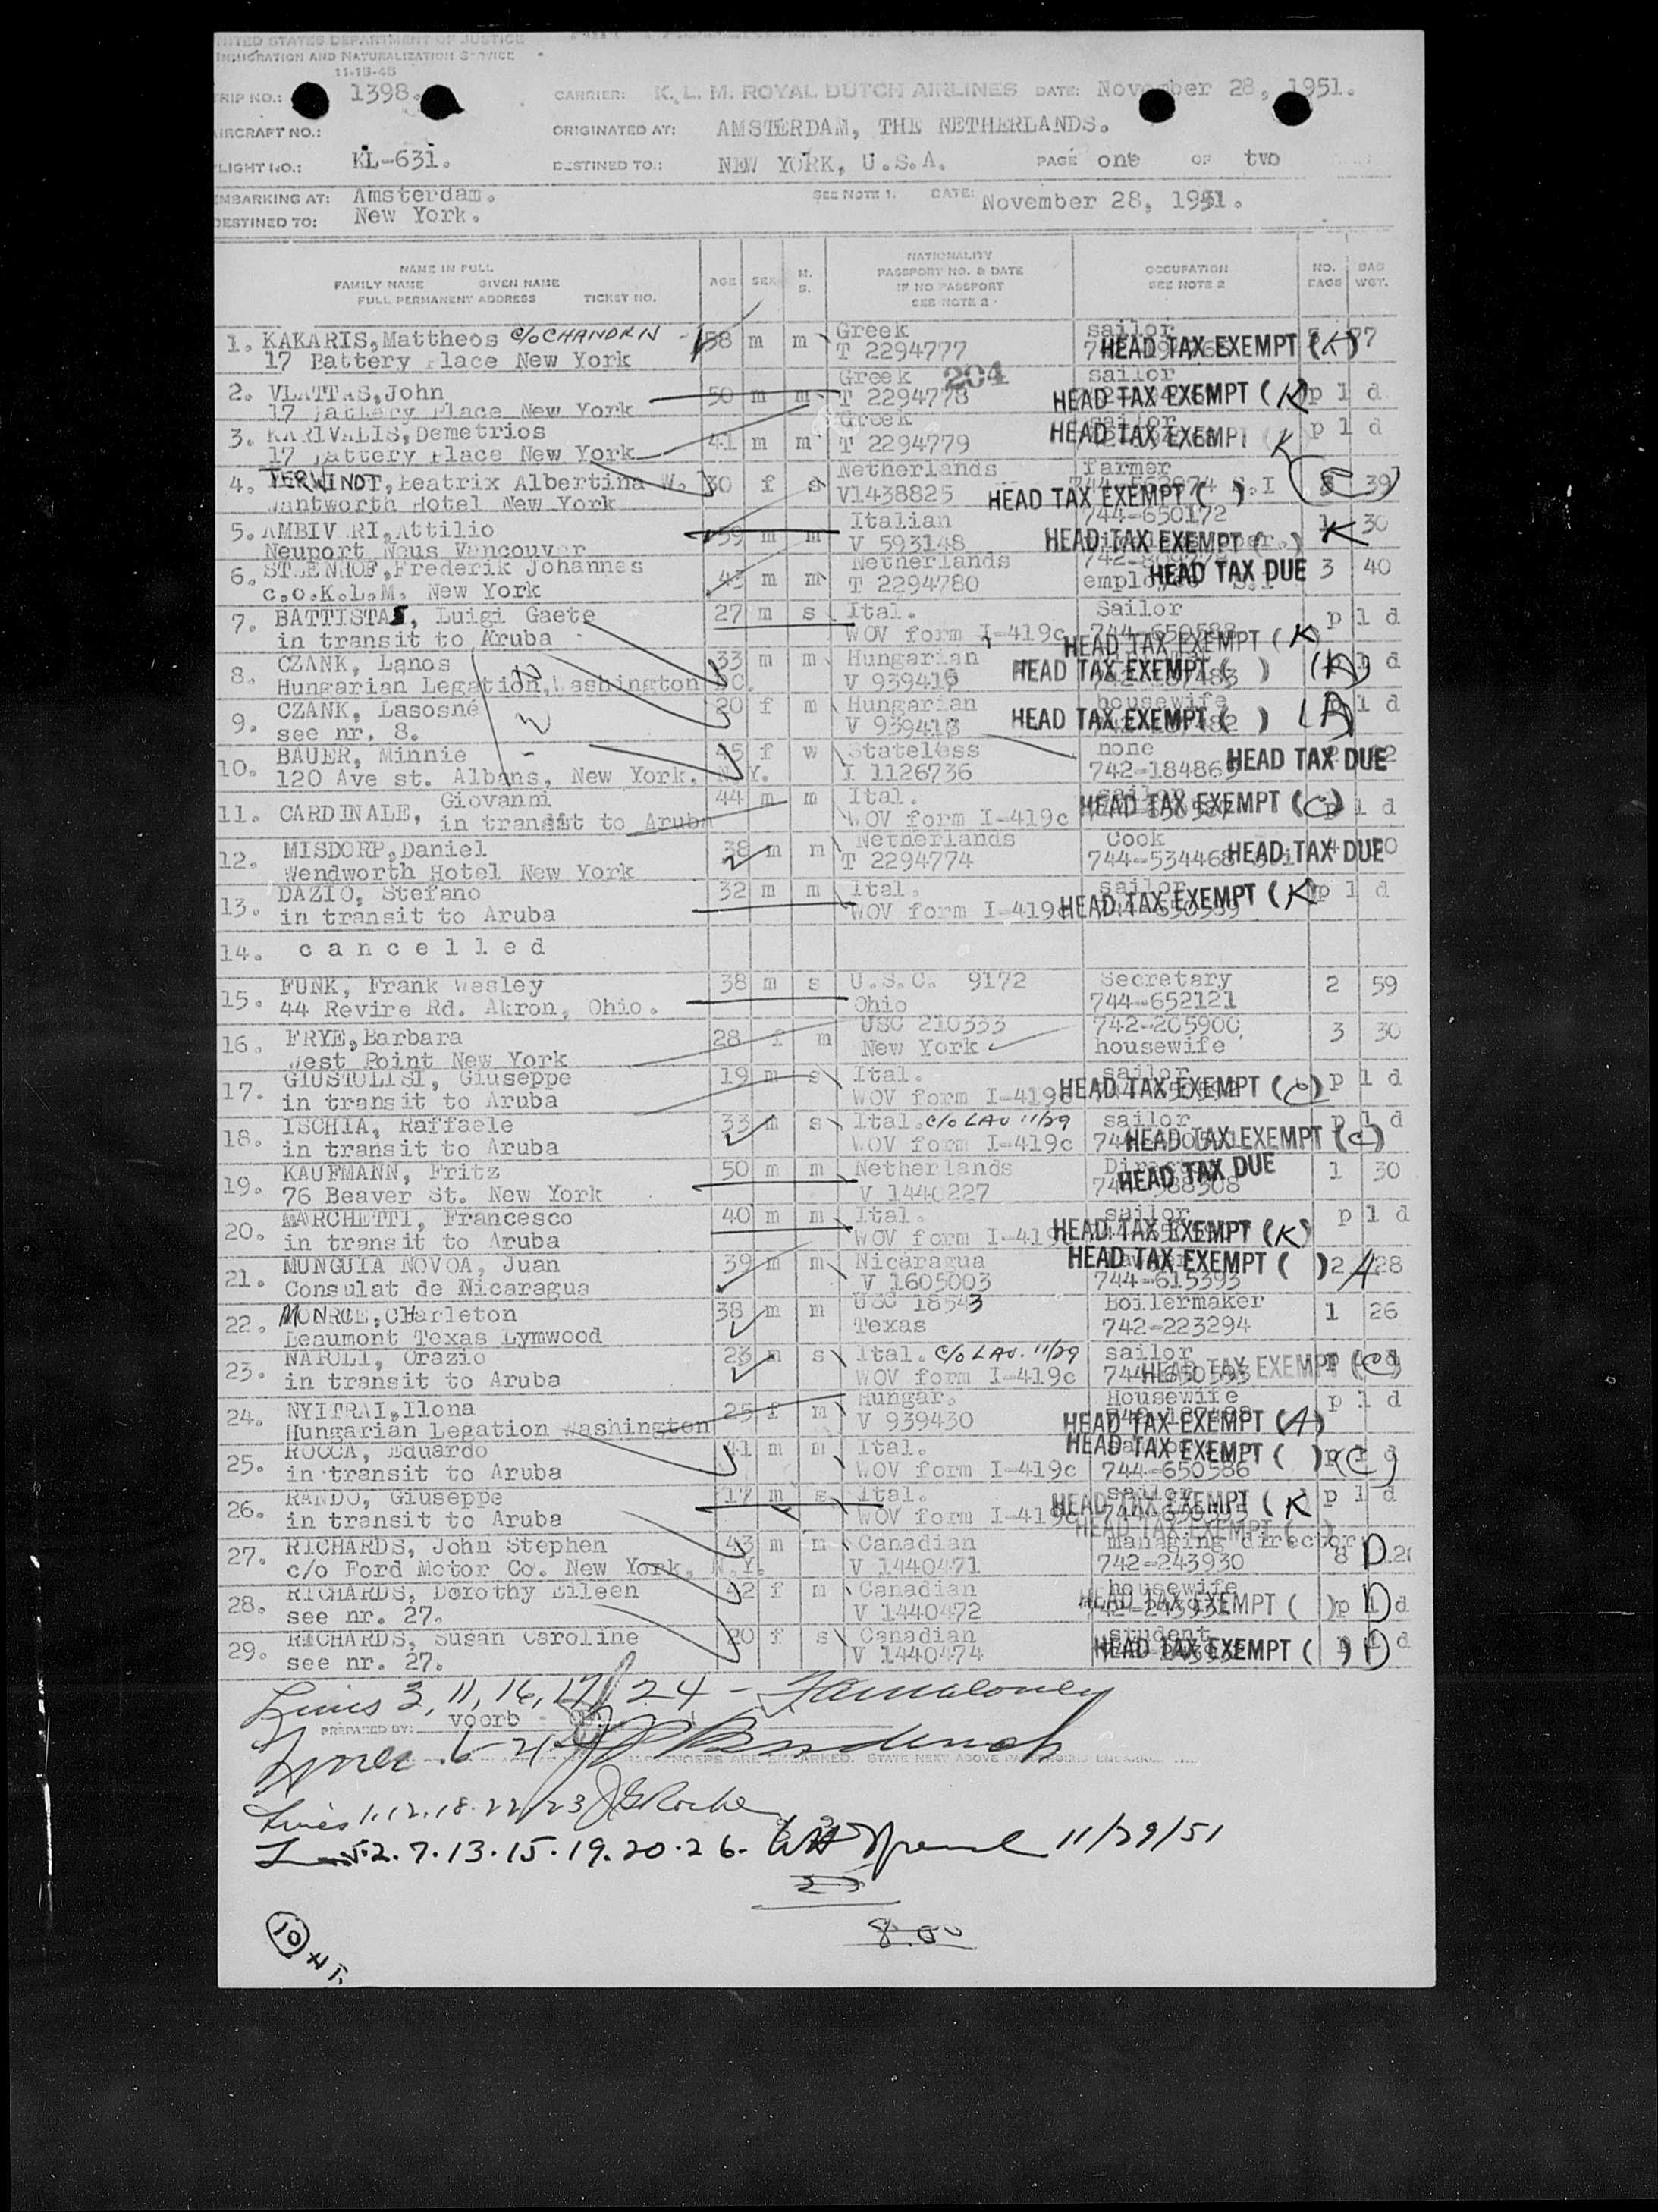 UNITED STATES DEPARTMENT OF JUSTICE
IMMIGRATION AND NATURALIZATION SERVICE
11-15-45
TRIP NO.: 1398. CARRIER: K. L. M. ROYAL DUTCH AIRLINES DATE: November 28, 1951.
AIRCRAFT NO.: ORIGINATED AT: AMSTERDAM, THE NETHERLANDS.
FLIGHT NO.: KL-631. DESTINED TO.: NEW YORK, U.S.A. PAGE one OF two
EMBARKING AT: Amsterdam. SEE NOTE 1. DATE: November 28, 1951.
DESTINED TO: New York.
NAME IN FULL
FAMILY NAME GIVEN NAME
FULL PERMANENT ADDRESS TICKET NO.
AGE SEX M. S.
NATIONALITY
PASSPORT NO. & DATE
IF NO PASSPORT
SEE NOTE 2
OCCUPATION
SEE NOTE 2
NO. BAGS BAG WGT.
1. KAKARIS, Mattheos c/o CHANDRIS 58 m m Greek sailor
17 Battery Place New York T 2294777 HEAD TAX EXEMPT (K) 77
204
2. VLATTAS, John 50 m m Greek sailor
17 Battery Place New York T 2294778 HEAD TAX EXEMPT (K) p 1 d
3. KARIVALIS, Demetrios 41 m m Greek sailor
17 Battery Place New York T 2294779 HEAD TAX EXEMPT ( K p 1 d
4. TERWINDT, Beatrix Albertina W. 30 f s Netherlands farmer
Wantworth Hotel New York V1438825 HEAD TAX EXEMPT ( ) S.I 39
5. AMBIVERI, Attilio 59 m m Italian 744-650172 1 30
Neuport Nous Vancouver V 593148 HEAD TAX EXEMPT ( ) K
6. STEENHOF, Frederik Johannes 43 m m Netherlands
c.o.K.L.M. New York T 2294780 HEAD TAX DUE 3 40
7. BATTISTAS, Luigi Gaete 27 m s Ital. Sailor p 1 d
in transit to Aruba WOV form I-419c HEAD TAX EXEMPT (K)
8. CZANK, Lanos 33 m m Hungarian
Hungarian Legation, Washington DC. V 939416 HEAD TAX EXEMPT ( ) (A) d
9. CZANK, Lasosné 20 f m Hungarian housewife 1 d
see nr. 8. V 939418 HEAD TAX EXEMPT ( ) (A)
10. BAUER, Minnie 45 f w Stateless none
120 Ave st. Albans, New York, N.Y. I 1126736 742-184865 HEAD TAX DUE
11. CARDINALE, Giovanni 44 m m Ital. sailor
in transit to Aruba WOV form I-419c HEAD TAX EXEMPT (C) 1 d
12. MISDORP, Daniel 38 m m Netherlands Cook
Wendworth Hotel New York T 2294774 744-534468 HEAD TAX DUE
13. DAZIO, Stefano 32 m m Ital. sailor
in transit to Aruba WOV form I-419c HEAD TAX EXEMPT (K p 1 d
14. cancelled
15. FUNK, Frank Wesley 38 m s U.S.C. 9172 Secretary 2 59
44 Revire Rd. Akron, Ohio. Ohio 744-652121
16. FRYE, Barbara 28 f m USC 210333 742-205900 3 30
West Point New York New York housewife
17. GIUSTOLISI, Giuseppe 19 m s Ital. sailor
in transit to Aruba WOV form I-419c HEAD TAX EXEMPT (C) p 1 d
18. ISCHIA, Raffaele 33 m s Ital. c/o LAV 11/29 sailor p 1 d
in transit to Aruba WOV form I-419c HEAD TAX EXEMPT (C)
19. KAUFMANN, Fritz 50 m m Netherlands 1 30
76 Beaver St. New York V 1440227 HEAD TAX DUE
20. MARCHETTI, Francesco 40 m m Ital. sailor p 1 d
in transit to Aruba WOV form I-419c HEAD TAX EXEMPT (K)
21. MUNGUIA NOVOA, Juan 39 m m Nicaragua HEAD TAX EXEMPT ( ) 2 A 28
Consulat de Nicaragua V 1605003 744-615393
22. MONROE, CHarleton 38 m m USC 18543 Boilermaker 1 26
Beaumont Texas Lymwood Texas 742-223294
23. NAPOLI, Orazio 23 m s Ital. c/o LAV. 11/29 sailor
in transit to Aruba WOV form I-419c 744-650595 HEAD TAX EXEMPT (C)
24. NYITRAI, Ilona 25 f m Hungar. Housewife p 1 d
Hungarian Legation Washington V 939430 HEAD TAX EXEMPT (A)
25. ROCCA, Eduardo 41 m m Ital. HEAD TAX EXEMPT ( ) (C)
in transit to Aruba WOV form I-419c 744-650586
26. RANDO, Giuseppe 17 m s Ital. sailor p 1 d
in transit to Aruba WOV form I-419c HEAD TAX EXEMPT ( K
HEAD TAX EXEMPT ( )
27. RICHARDS, John Stephen 43 m m Canadian managing director
c/o Ford Motor Co. New York, N.Y. V 1440471 742-243930 8 D
28. RICHARDS, Dorothy Eileen 42 f m Canadian housewife
see nr. 27. V 1440472 HEAD TAX EXEMPT ( ) p 1 d D
29. RICHARDS, Susan Caroline 20 f s Canadian student
see nr. 27. V 1440474 HEAD TAX EXEMPT ( ) D d
Lines 3, 11, 16, 17, 24 -
PREPARED BY: voorb
Lines 6-21
PASSENGERS ARE EMBARKED. STATE NEXT ABOVE
Lines 1.12.18.22.23 J G Roche
2.7.13.15.19.20.26. 11/29/51
8.00
10 H T.